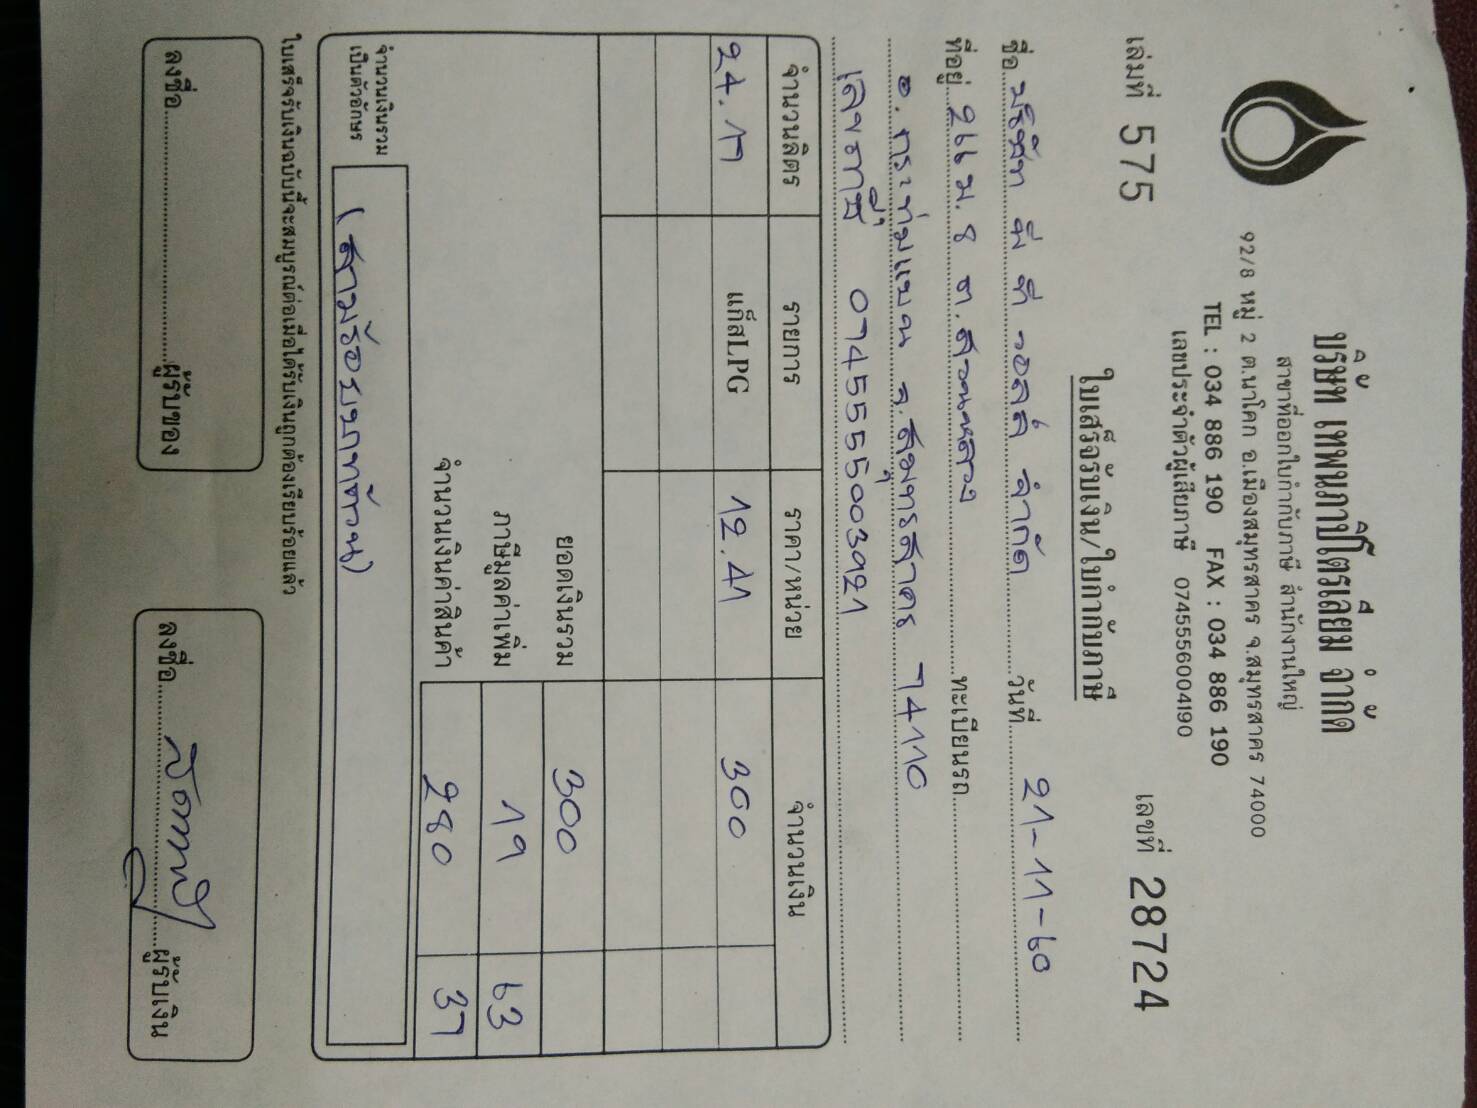 บริษัท เทพนภาปิโตรเลียม จำกัด
สาขาที่ออกใบกำกับภาษี สำนักงานใหญ่
92/8 หมู่ 2 ต.นาโคก อ.เมืองสมุทรสาคร จ.สมุทรสาคร 74000
TEL : 034 886 190 FAX : 034 886 190
เลขประจำตัวผู้เสียภาษี 0745556004190
เล่มที่ 575
ใบเสร็จรับเงิน/ใบกำกับภาษี
เลขที่ 28724
ชื่อ บริษัท มี ดี วอลล์ จำกัด วันที่ 21-11-60
ที่อยู่ 266 ม.8 ต.สวนหลวง ทะเบียนรถ
อ.กระทุ่มแบน จ.สมุทรสาคร 74110
เลขภาษี 0745555003921
จำนวนลิตร รายการ ราคา/หน่วย จำนวนเงิน
24.17 แก๊สLPG 12.41 300
ยอดเงินรวม 300
ภาษีมูลค่าเพิ่ม 19 63
จำนวนเงินค่าสินค้า 280 37
จำนวนเงินรวม
เป็นตัวอักษร
(สามร้อยบาทถ้วน)
ใบเสร็จรับเงินฉบับนี้จะสมบูรณ์ต่อเมื่อได้รับเงินถูกต้องเรียบร้อยแล้ว
ลงชื่อ ผู้รับของ
ลงชื่อ ผู้รับเงิน